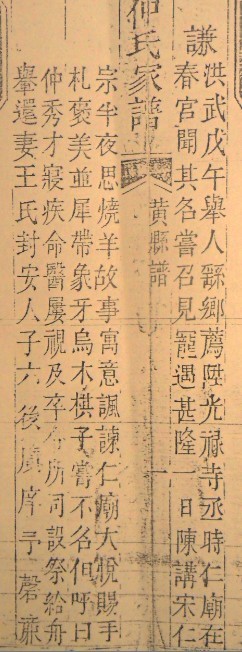 謙洪武戊午舉人繇鄉薦陞光祿寺丞時仁廟在
春宮聞其名嘗召見寵遇甚隆一日陳講宋仁
仲氏家譜
黄縣譜
宗半夜思燒羊故事寓意諷諫仁廟大悅賜手
札褒美並犀帶象牙烏木棋子嘗不名但呼曰
仲秀才寢疾命醫屢視及卒命所司設祭給舟
轝還妻王氏封安人子六